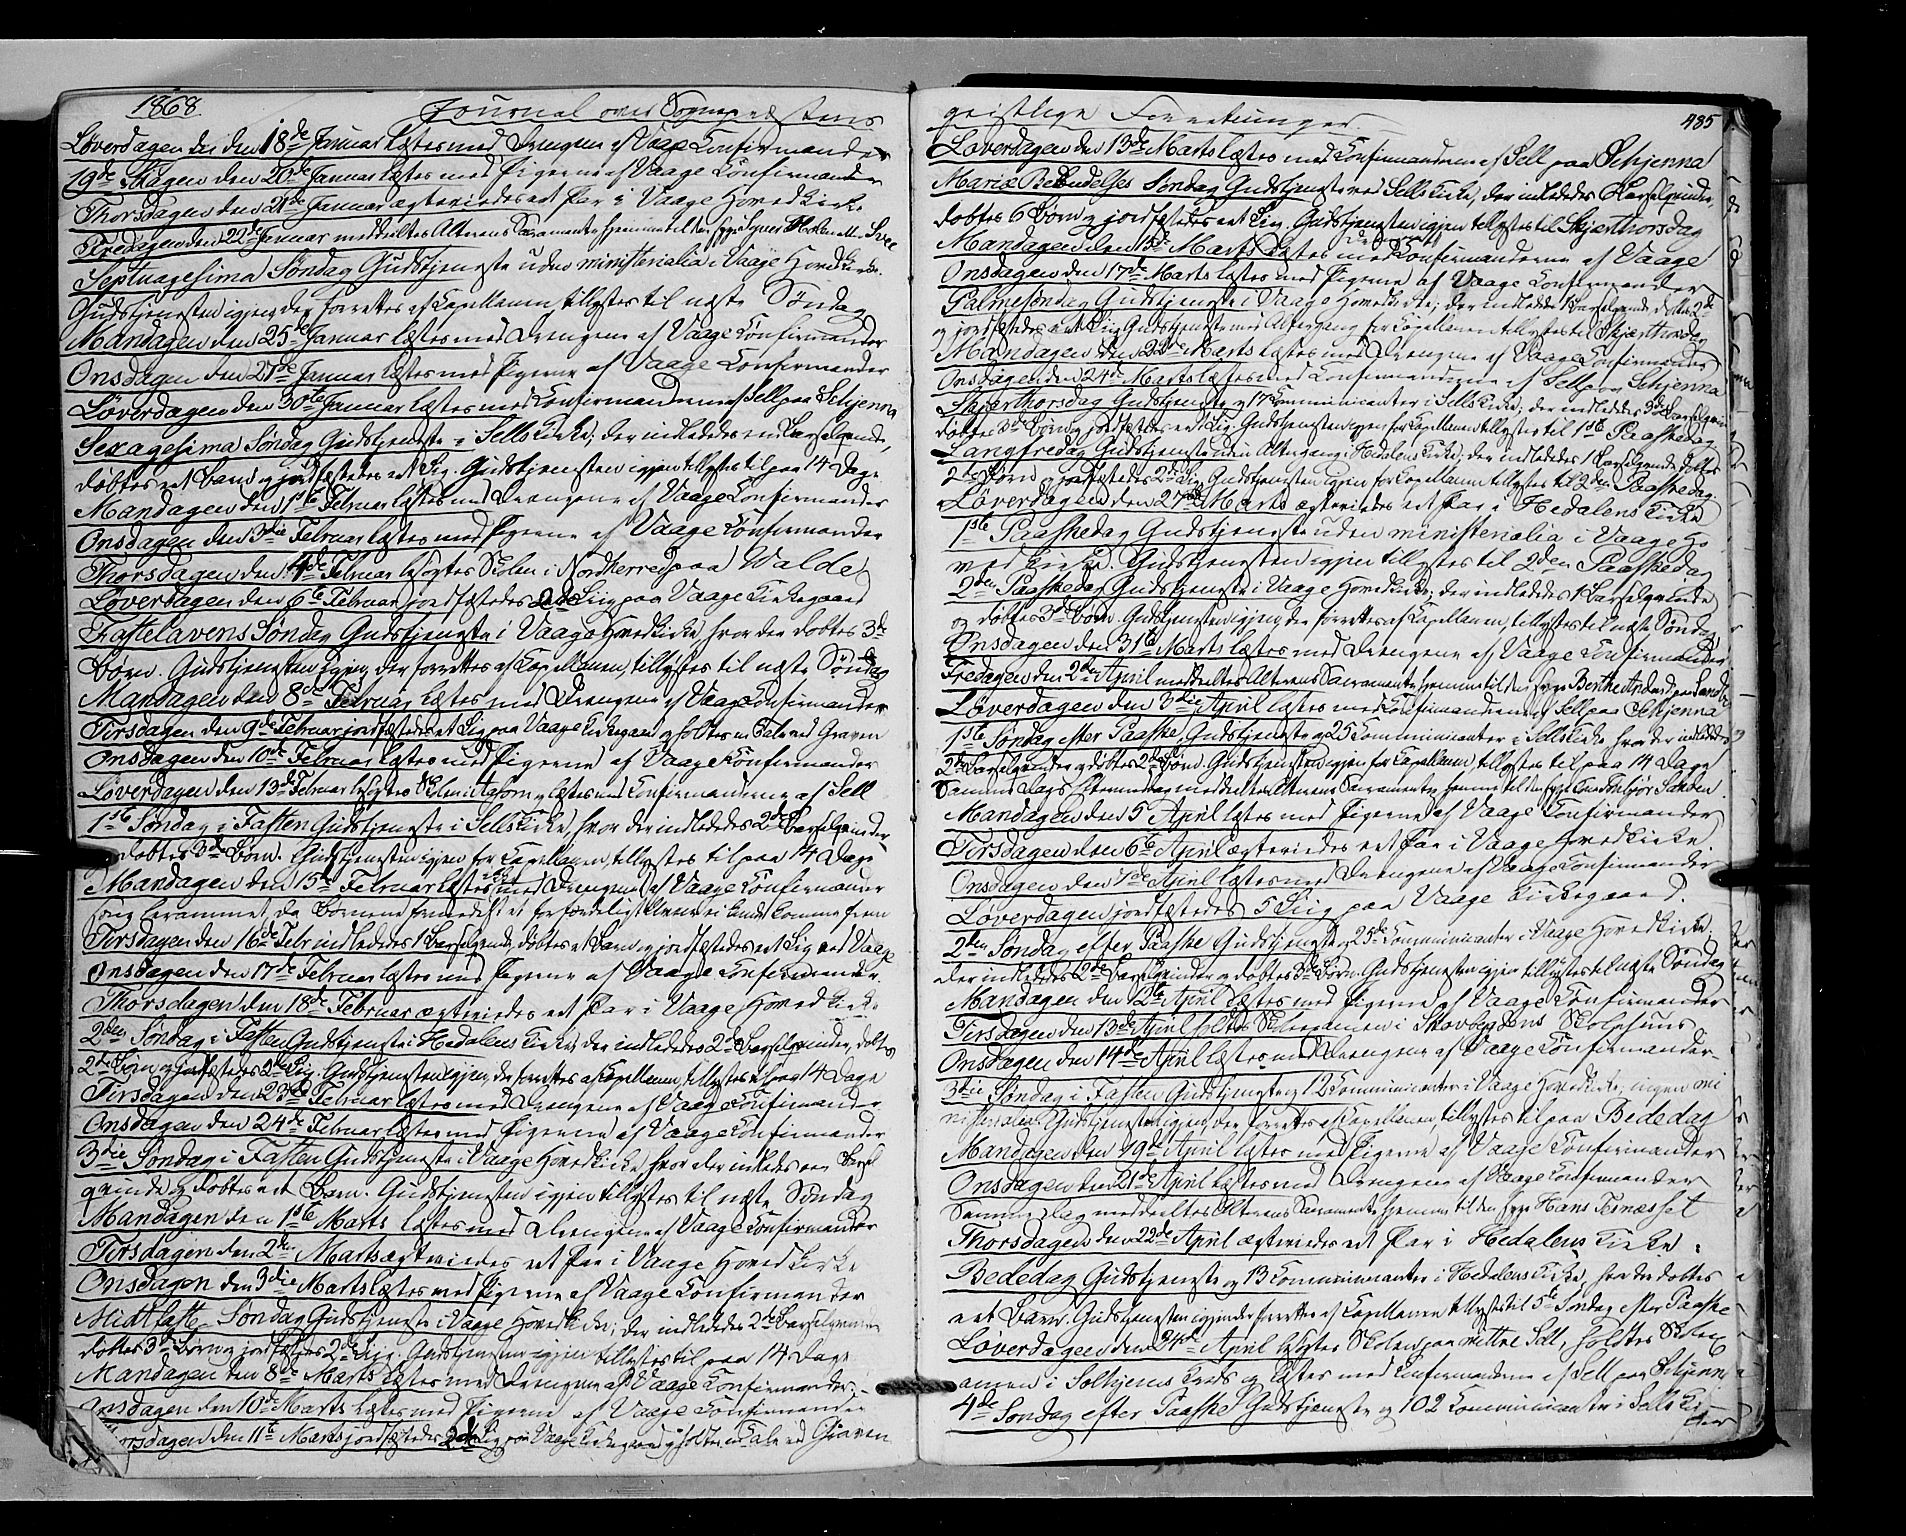 1868. Journal over Sognepræstens
Løverdagen den 18de Januar læstes med Drengene af Vaage Confirmander
den 20de Januar læstes med Pigerne af Vaage Confirmander
Thorsdagen den 21de Januar ægteviedes et Par i Vaage Hovedkirke
Fredagen den 22de Januar meddeeltes Alterens Sacramente hjemme til den syge
Septuagesima Søndag Gudstjeneste uden ministerialia i Vaage Hovedkirke.
Gudstjenesten igjen, der forrettes af Kapellanen, tillystes til næste Søndag
Mandagen den 25de Januar læstes med Drengene af Vaage Confirmander
Onsdagen den 27de Januar læstes med Pigerne af Vaage Confirmander
Løverdagen den 30te Januar læstes med Confirmanderne af Sell paa Schjenna
Sexagesima Søndag Gudstjeneste i Sells Kirke; der indledes en Barselqvinde,
døbtes et Barn og jordfæstedes et Lig. Gudstjenesten igjen tillystes til paa 14 Dage
Mandagen den 1ste Februar læstes med Drengene af Vaage Confirmander
Onsdagen den 3die Februar læstes med Pigerne af Vaage Confirmander
Thorsdagen den 4de Februar besøgtes Skolen i Nordherred paa Walde
Løverdagen den 6te Februar jordfæstedes 2de Lig paa Vaage Kirkegaard
Fastelavens Søndag Gudstjeneste i Vaage Hovedkirke, hvor der døbtes 3de
Børn. Gudstjenesten igjen, der forrettes af Kapellanen, tillystes til næste Søndag
Mandagen den 8de Februar læstes med Drengene af Vaage Confirmander
Tirsdagen den 9de Februar jordfæstedes et Lig paa Vaage Kirkegaard og holdtes en Tale ved Graven
Onsdagen den 10de Februar læstes med Pigerne af Vaage Confirmander
Løverdagen den 13de Februar besøgtes Skolen i og læstes med Confirmanderne af Sell
1ste Søndag i Fasten Gudstjeneste i Sells Kirke, hvor der indledes 2de Barselqvinder,
døbtes 3de Børn. Gudstjenesten igjen for Kapellanen tillystes til paa 14 Dage
Mandagen den 15de Februar læstes med Drengene af Vaage Confirmander
da Børnene ei kunde komme frem
Tirsdagen den 16de Febr indledes 1 Barselqvinde, døbtes et Barn og jordfæstedes et Lig ved Vaage
Onsdagen den 17de Februar læstes med Pigerne af Vaage Confirmander.
Thorsdagen den 18de Februar ægteviedes et Par i Vaage Hovedkirke
2den Søndag i Fasten Gudstjeneste i Hedalens Kirke; der indledes 2de Barselqvinder, døbtes
2de Børn og jordfæstedes 3de Lig. Gudstjenesten igjen, der forrettes af Kapellanen, tillystes til paa 14 Dage
Tirsdagen den 23de Februar læstes med Drengene af Vaage Confirmander
Onsdagen den 24de Februar læstes med Pigerne af Vaage Confirmander
3die Søndag i Fasten Gudstjeneste i Vaage Hovedkirke, hvor der indledes en Barsel
qvinde og døbtes et Barn. Gudstjenesten igjen tillystes til næste Søndag
Mandagen den 1ste Marts læstes med Drengene af Vaage Confirmander
Tirsdagen den 2den Marts ægteviedes et Par i Vaage Hovedkirke
Onsdagen den 3die Marts læstes med Pigerne af Vaage Confirmander
Midtfaste Søndag Gudstjeneste i Vaage Hovedkirke; der indledes 2de Barselqvinder
døbtes 3de Børn og jordfæstedes 2de Lig. Gudstjenesten igjen tillystes til paa 14 Dage
Mandagen den 8de Marts læstes med Drengene af Vaage Confirmander
Onsdagen den 10de Marts læstes med Pigerne af Vaage Confirmander
Thorsdagen den 11te Marts jordfæstedes 2de Lig paa Vaage Kirkegaard og holdtes en Tale ved Graven
geistlige Forretninger. 485
Løverdagen den 13de Marts læstes med Confirmanderne af Sell paa Schjenna
Mariæ Bebudelses Søndag Gudstjeneste ved Sells Kirke, der indledes Barselqvinder,
døbtes 6 Børn og jordfæstedes et Lig. Gudstjenesten igjen tillystes til Skjærthorsdag
Mandagen den 15de Marts læstes med Confirmanderne af Vaage
Onsdagen den 17de Marts læstes med Pigerne af Vaage Confirmander
Palmesøndag Gudstjeneste i Vaage Hovedkirke; der indledes 1 Barselqvinde, døbtes 2de
og jordfæstedes et Lig. Gudstjeneste med Altergang for Kapellanen tillystes til Skjærthorsdag
Mandagen den 22de Marts læstes med Drengene af Vaage Confirmander
Onsdagen den 24de Marts læstes med Confirmanderne af Sell paa Schjenna
Skjærthorsdag Gudstjeneste og 17 Communicanter i Sells Kirke; der indledes 3de Barselqvinder
døbtes 3de Børn og jordfæstedes et Lig. Gudstjenesten igjen for Kapellanen tillystes til 1ste Paaskedag
Langfredag Gudstjeneste uden Altergang i Hedalens Kirke; der indledes 1 Barselqvinde, døbtes
2de Børn og jordfæstedes 2de Lig. Gudstjenesten igjen for Kapellanen tillystes til 2den Paaskedag.
Løverdagen den 27de Marts ægteviedes et Par i Hedalens Kirke
1ste Paaskedag Gudstjeneste uden ministerialia i Vaage Ho
vedkirke. Gudstjenesten igjen tillystes til 2den Paaskedag
2den Paaskedag Gudstjeneste i Vaage Hovedkirke; der indledes 1 Barselqvinde
og døbtes 3de Børn. Gudstjenesten igjen, der forrettes af Kapellanen, tillystes til næste Søndag
Onsdagen den 31te Marts læstes med Drengene af Vaage Confirmander
Fredagen den 2den April meddeeltes Alterens Sacramente hjemme til den syge Berthe
Løverdagen den 3die April læstes med Confirmanderne af Sell paa Schjenna
1ste Søndag efter Paaske Gudstjeneste og 25 Communicanter i Sells Kirke hvor der indledes
2de Barselqvinder og døbtes 2de Børn. Gudstjenesten igjen for Kapellanen tillystes til paa 14 Dage
Samme Dags Eftermiddag meddeeltes Alterens Sacramente hjemme til den syge
Mandagen den 5 April læstes med Pigerne af Vaage Confirmander
Tirsdagen den 6te April ægteviedes et Par i Vaage Hovedkirke
Onsdagen den 7de April læstes med Drengene af Vaage Confirmander
Løverdagen jordfæstedes 5 Liig paa Vaage Kirkegaard.
2den Søndag efter Paaske Gudstjeneste og 25de Communicanter i Vaage Hovedkirke;
der indledes 2de Barselqvinder og døbtes 3de Børn. Gudstjenesten igjen tillystes til næste Søndag
Mandagen den 12te April læstes med Pigerne af Vaage Confirmander
Tirsdagen den 13de April holdtes Skoleexamen i Skolehuus
Onsdagen den 14de April læstes med Drengene af Vaage Confirmander
3die Søndag i Fasten Gudstjeneste og 12 Communicanter i Vaage Hovedkirke; ingen mi
nisterialia. Gudstjenesten igjen, der forrettes af Kapellanen, tillystes til paa Bededag
Mandagen den 19de April læstes med Pigerne af Vaage Confirmander
Onsdagen den 21de April læstes med Drengene af Vaage Confirmander
Samme Dag meddeeltes Alterens Sacramente hjemme til den syge Hans
Thorsdagen den 22de April ægteviedes et Par i Hedalens Kirke.
Bededag Gudstjeneste og 13 Communicanter i Hedalens Kirke, hvor der døbtes
et Barn. Gudstjenesten igjen, der forrettes af Kapellanen tillystes til 5te Søndag efter Paaske
Løverdagen den 24de April besøgtes Skolen paa nittre Sell, holdtes Skoleex
amen i Solhjems Kreds og læstes med Confirmanderne af Sell paa Schjenna
4de Søndag efter Paaske Gudstjeneste og 102 Communicanter i Sells Kir